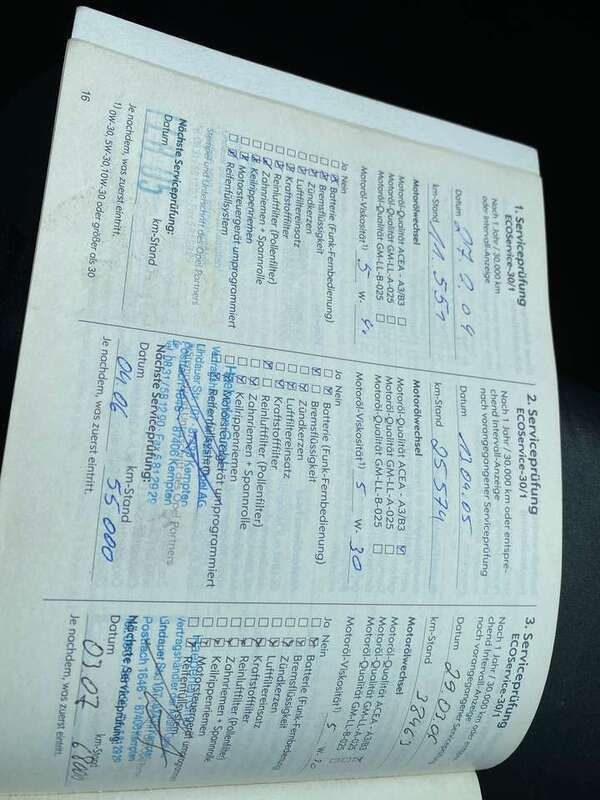 1. Serviceprüfung
ECOService-30/1
Nach 1 Jahr / 30.000 km
oder Intervall-Anzeige
Datum
km-Stand 11 551
Motorölwechsel
Motoröl-Qualität ACEA - A3/B3
Motoröl-Qualität GM-LL-A-025
Motoröl-Qualität GM-LL-B-025
Motoröl-Viskosität¹⁾ 5 W-
Ja Nein
Batterie (Funk-Fernbedienung)
Bremsflüssigkeit
Zündkerzen
Luftfiltereinsatz
Kraftstofffilter
Reinluftfilter (Pollenfilter)
Zahnriemen + Spannrolle
Keilrippenriemen
Motorsteuergerät umprogrammiert
Reifenfüllsystem
Stempel und Unterschrift des Opel Partners
Nächste Serviceprüfung:
Datum km-Stand
Je nachdem, was zuerst eintritt.
1) 0W-30, 5W-30, 10W-30 oder größer als 30
16
2. Serviceprüfung
ECOService-30/1
Nach 1 Jahr / 30.000 km oder entspre-
chend Intervall-Anzeige
nach vorangegangener Serviceprüfung
Datum 11.04.05
km-Stand 25 574
Motorölwechsel
Motoröl-Qualität ACEA - A3/B3
Motoröl-Qualität GM-LL-A-025
Motoröl-Qualität GM-LL-B-025
Motoröl-Viskosität¹⁾ 5 W-30
Ja Nein
Batterie (Funk-Fernbedienung)
Bremsflüssigkeit
Zündkerzen
Luftfiltereinsatz
Kraftstofffilter
Reinluftfilter (Pollenfilter)
Zahnriemen + Spannrolle
Keilrippenriemen
Motorsteuergerät umprogrammiert
Reifenfüllsystem
Nächste Serviceprüfung:
Datum km-Stand
04.06 55 000
Je nachdem, was zuerst eintritt.
3. Serviceprüfung
ECOService-30/1
Nach 1 Jahr / 30.000 km oder entspre-
chend Intervall-Anzeige
nach vorangegangener Serviceprüfung
Datum 29.03.06
km-Stand 38463
Motorölwechsel
Motoröl-Qualität ACEA - A3/B3
Motoröl-Qualität GM-LL-A-025
Motoröl-Qualität GM-LL-B-025
Motoröl-Viskosität¹⁾ 5 W-30
Ja Nein
Batterie (Funk-Fernbedienung)
Bremsflüssigkeit
Zündkerzen
Luftfiltereinsatz
Kraftstofffilter
Reinluftfilter (Pollenfilter)
Zahnriemen + Spannrolle
Keilrippenriemen
Reifenfüllsystem
Vertragshändler
Postfach 1646
Nächste Serviceprüfung:
Datum km-Stand
03.07
Je nachdem, was zuerst eintritt